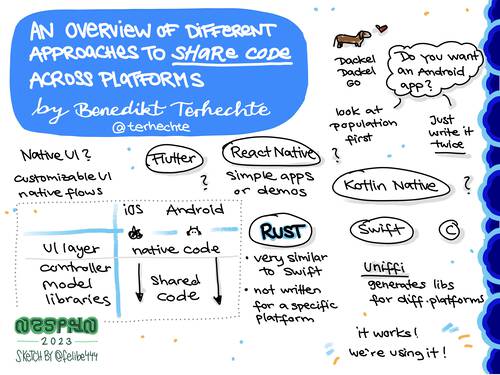 AN OVERVIEW OF DIFFERENT
APPROACHES TO SHARE CODE
ACROSS PLATFORMS
by Benedikt Terhechte
@terhechte
Dackel
Dackel
GO
Do you want
an Android
app?
look at
population
first
Just
write it
twice
Native UI?
customizable UI
native flows
Flutter
React Native
?
Simple apps
or demos
?
Kotlin Native
iOS Android
UI layer
controller
model
libraries
native code
Shared
code
RUST
• very similar
to Swift
• not written
for a specific
platform
Swift
C
Uniffi
generates libs
for diff. platforms
it works!
we're using it!
NSSPAIN
2023
SKETCH BY @felibe444